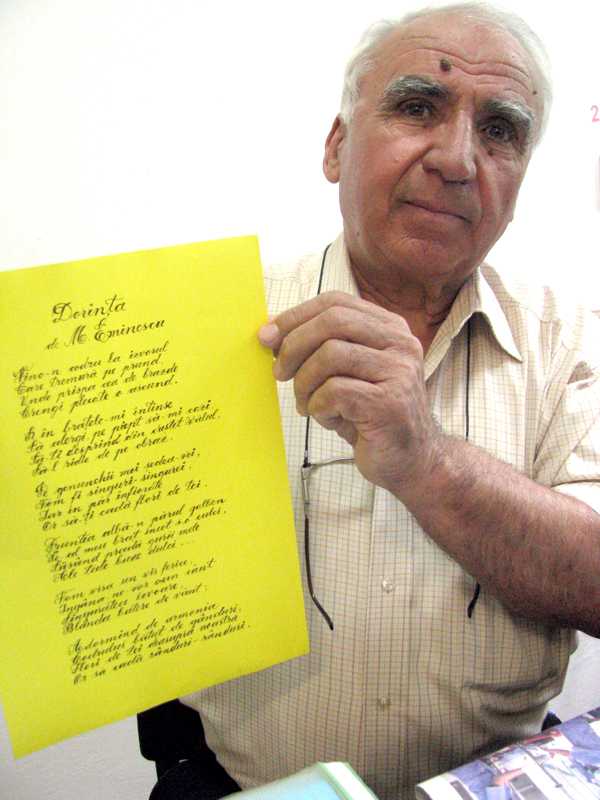 Dorința
de M Eminescu
Vino-n codru la izvorul
Care tremură pe prund,
Unde prispa cea de brazde
Crengi plecate o ascund.
Și în brațele-mi întinse
Să alergi, pe piept să-mi cazi,
Să-ți desprind din creștet vălul,
Să-l ridic de pe obraz.
Pe genunchii mei ședea-vei,
Vom fi singuri-singurei,
Iar în păr înfiorate
Or să-ți cadă flori de tei.
Fruntea albă-n părul galben
Pe al meu braț încet s-o culci,
Lăsând pradă gurii mele
Ale tale buze dulci....
Vom visa un vis ferice,
Îngâna-ne-vor cu-un cânt
Singuratece izvoare,
Blânda batere de vânt;
Adormind de armonia
Codrului bătut de gânduri,
Flori de tei deasupra noastră
Or să cadă rânduri-rânduri.
2